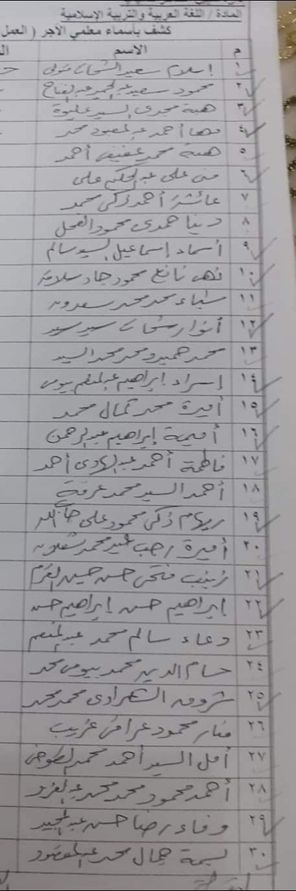 المادة / اللغة العربية والتربية الإسلامية
كشف بأسماء معلمي الأجر ( العمل
م الاسم
١ إسلام سعيد الشحات متولى
٢ محمود سعيد عبد الحميد عبد الفتاح
٣ هبة مجدى السيد عليوة
٤ مها أحمد عبد المقصود محمد
٥ هبة محمد عفيفى أحمد
٦ منى على عبد الحكيم على
٧ عائشة أحمد زكى محمد
٨ دينا حمدى محمود الفحل
٩ أسماء إسماعيل السيد سالم
١٠ نهى نافع محمود جاد سلامة
١١ شيماء محمد محمد سعدون
١٢ أنوار شحات سيد سيد
١٣ محمد حميدو محمد محمد السيد
١٤ إسراء إبراهيم عبد المنعم بيومى
١٥ أميرة محمد كمال محمد
١٦ أميمة إبراهيم عبد الرحمن
١٧ فاطمة أحمد عبد الهادى أحمد
١٨ أحمد السيد محمد عرفة
١٩ ريهام زكى محمود على
٢٠ أميرة رجب محمد
٢١ زينب فتحى حسن حسين
٢٢ إبراهيم حسن إبراهيم حسن
٢٣ دعاء سالم محمد عبد المنعم
٢٤ حسام الدين محمد بيومى محمد
٢٥ شروق الشهراوى محمد محمد
٢٦ منار محمود عراقى غريب
٢٧ أمل السيد أحمد محمد
٢٨ أحمد محمود محمد محمد
٢٩ وفاء رضا حسن عبد المجيد
٣٠ بسمة جمال محمد عبد المقصود